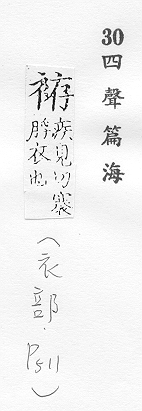 30四聲篇海
袸
疾見切褰
衣也
(衣部．P511)